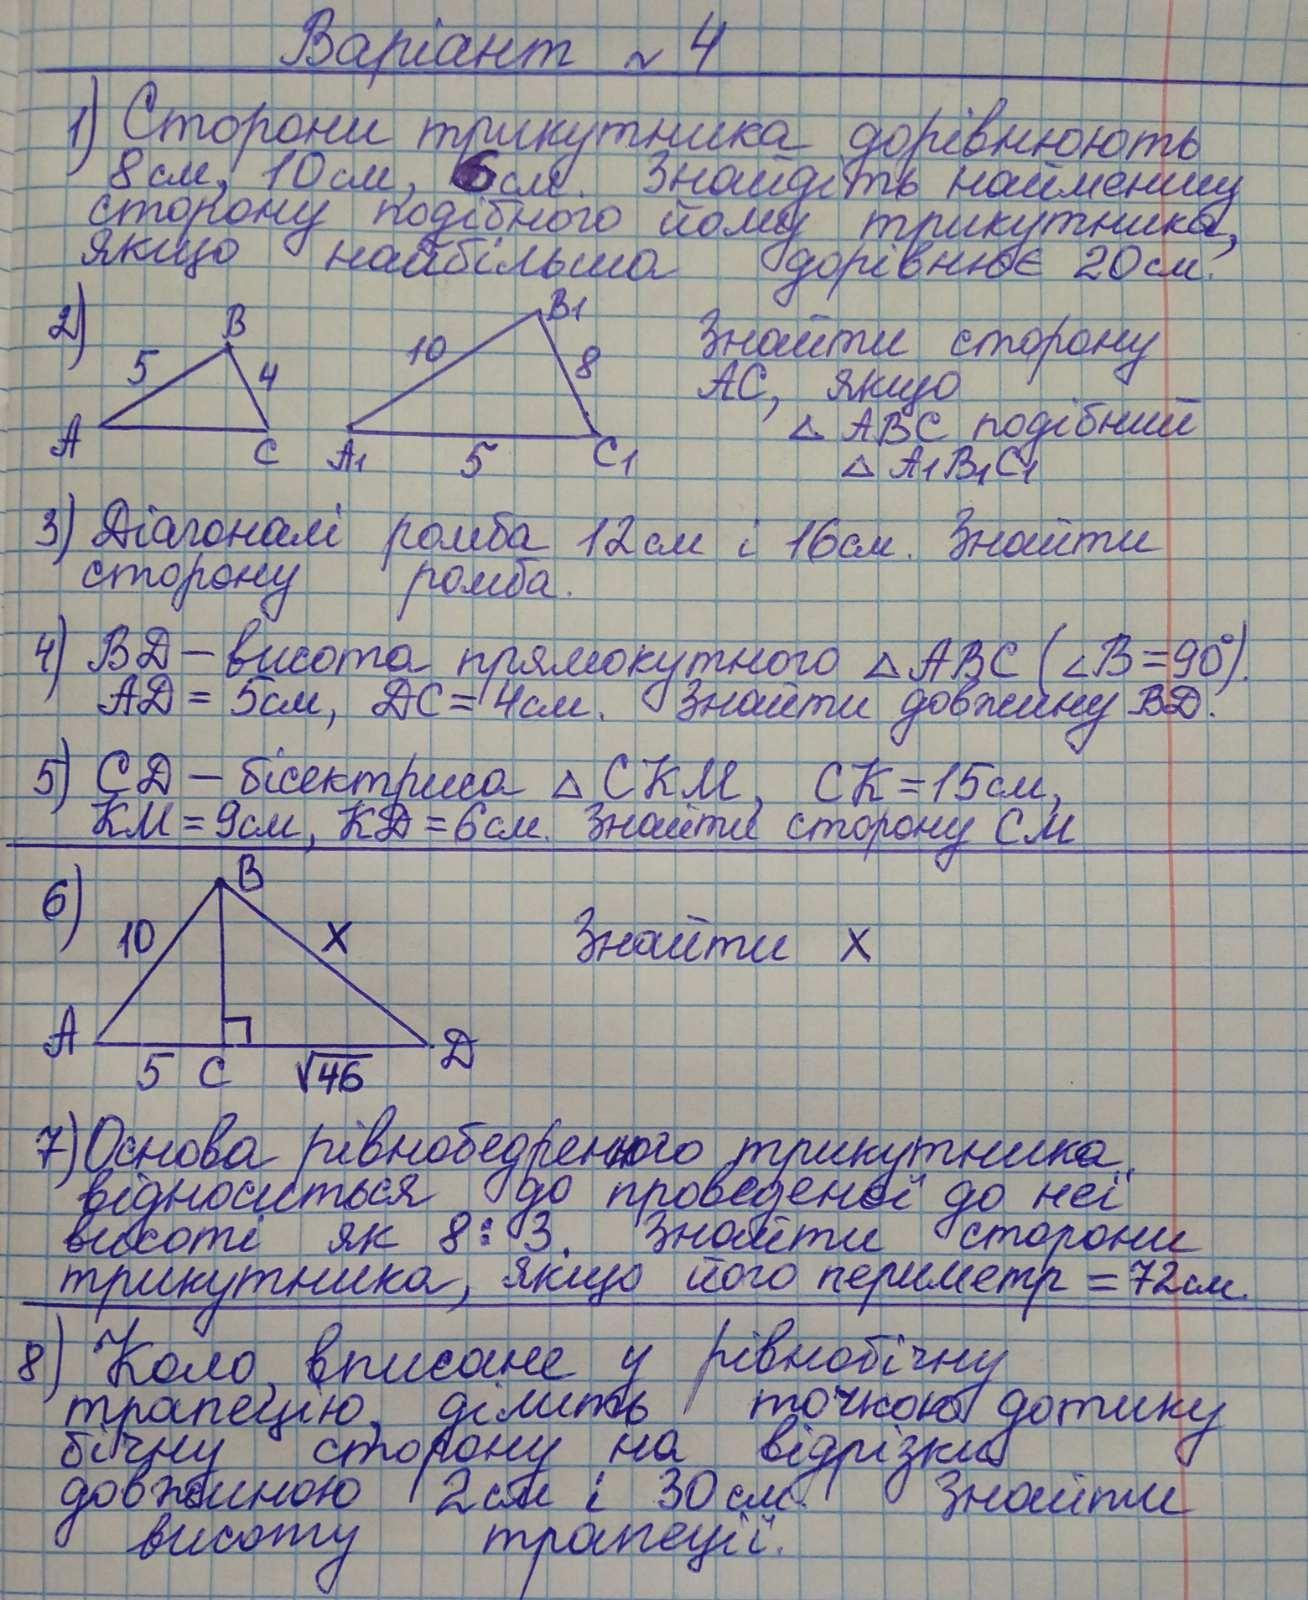 Варіант ~ 4
1) Сторони трикутника дорівнюють
8см, 10см, 6см. Знайдіть найменшу
сторону подібного йому трикутника,
якщо найбільша дорівнює 20см.
2)
B
5
4
A
C
B1
10
8
A1
5
C1
Знайти сторону
AC, якщо
△ ABC подібний
△ A1B1C1
3) Діагоналі ромба 12см і 16см. Знайти
сторону ромба.
4) BD – висота прямокутного △ABC (∠B=90°).
AD = 5см, DC = 4см. Знайти довжину BD.
5) CD – бісектриса △ CKM, CK = 15см,
KM = 9см, KD = 6см. Знайти сторону CM
6)
B
10
x
A
5
C
√46
D
Знайти x
7) Основа рівнобедреного трикутника,
відноситься до проведеної до неї
висоті як 8:3. Знайти сторони
трикутника, якщо його периметр = 72см.
8) Коло, вписане у рівнобічну
трапецію, ділить точкою дотику
бічну сторону на відрізки
довжиною 2см і 30см. Знайти
висоту трапеції.